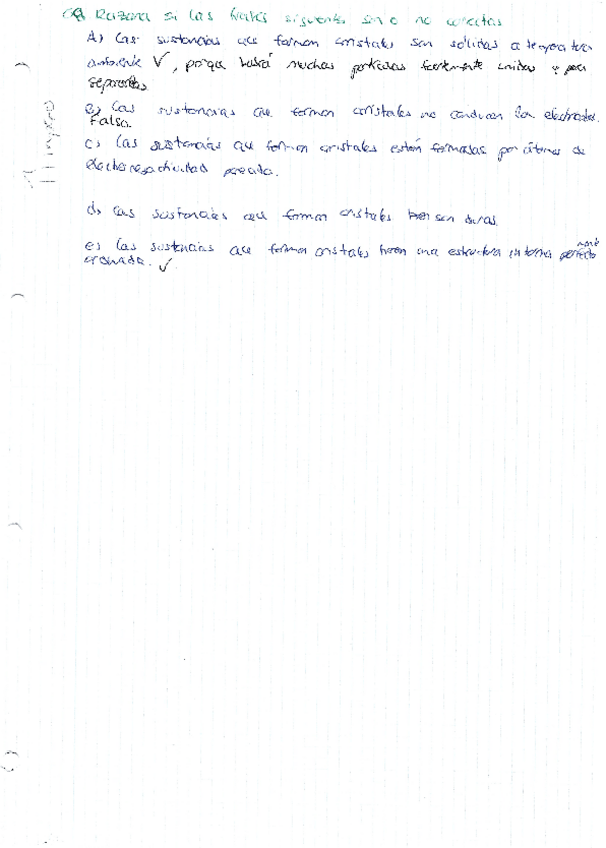 Razona si las frases siguientes son o no correctas
A) Las sustancias que forman cristales son sólidas a temperatura
ambiente V, porque habrá muchas partículas fuertemente unidas y para
separarlas
B) Las sustancias que forman cristales no conducen la electricidad.
Falsa.
c) Las sustancias que forman cristales están formadas por átomos de
electronegatividad parecida.
d) Las sustancias que forman cristales son duras.
e) Las sustancias que forman cristales tienen una estructura interna perfectamente
ordenada. V